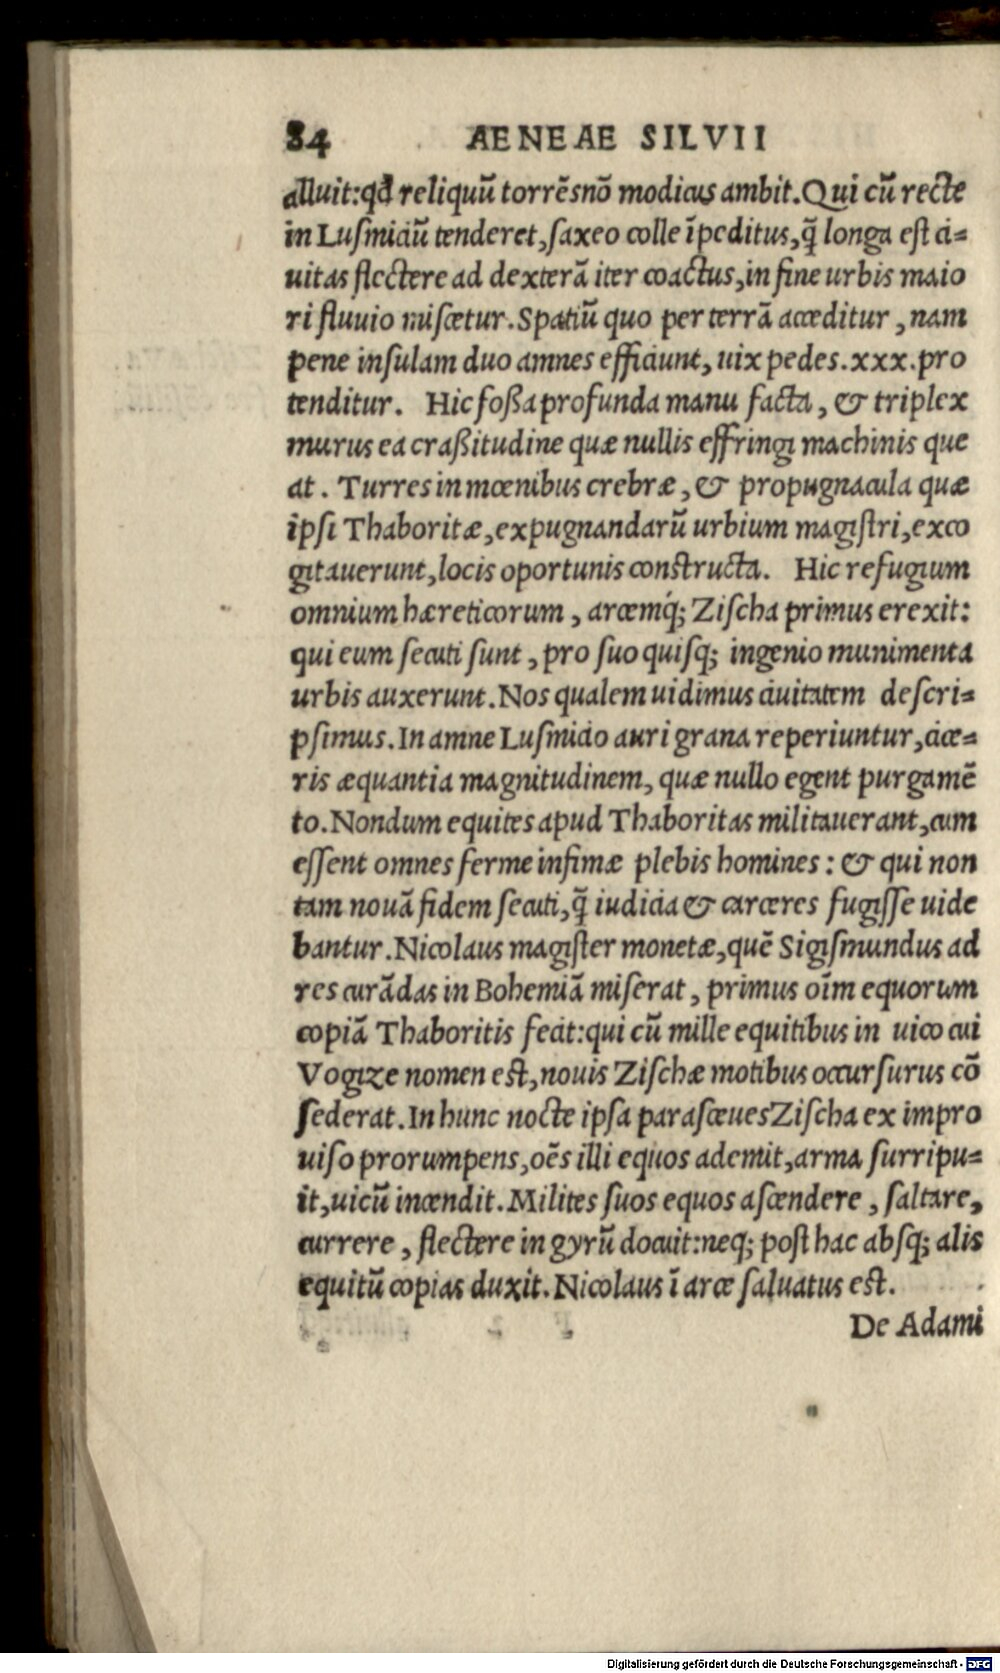 84 AENEAE SILVII
alluit:qđ reliquũ torrẽs nõ modicus ambit. Qui cũ recte
in Lusmiciũ tenderet, saxeo colle ĩpeditus, q̃ longa est ci=
uitas flectere ad dexterã iter coactus, in fine urbis maio
ri fluuio miscetur. Spatiũ quo per terrã acceditur, nam
pene insulam duo amnes efficiunt, uix pedes. xxx. pro
tenditur. Hic fossa profunda manu facta, & triplex
murus ea crassitudine quæ nullis effringi machinis que
at. Turres in mœnibus crebræ, & propugnacula quæ
ipsi Thaboritæ, expugnandarũ urbium magistri, exco
gitauerunt, locis oportunis constructa. Hic refugium
omnium hæreticorum, arcemq́; Zischa primus erexit:
qui eum secuti sunt, pro suo quisq; ingenio munimenta
urbis auxerunt. Nos qualem uidimus ciuitatem descri=
psimus. In amne Lusmicio auri grana reperiuntur, cice=
ris æquantia magnitudinem, quæ nullo egent purgamẽ
to. Nondum equites apud Thaboritas militauerant, cum
essent omnes ferme infimæ plebis homines: & qui non
tam nouã fidem secuti, q̃ iudicia & carceres fugisse uide
bantur. Nicolaus magister monetæ, quẽ Sigismundus ad
res curãdas in Bohemiã miserat, primus oĩm equorum
copiã Thaboritis fecit: qui cũ mille equitibus in uico cui
Vogize nomen est, nouis Zischæ motibus occursurus cõ
sederat. In hunc nocte ipsa parasceues Zischa ex impro
uiso prorumpens, oẽs illi equos ademit, arma surripu=
it, uicũ incendit. Milites suos equos ascendere, saltare,
currere, flectere in gyrũ docuit: neq; post hac absq; alis
equitũ copias duxit. Nicolaus ĩ arce saluatus est.
De Adami
Digitalisierung gefördert durch die Deutsche Forschungsgemeinschaft - DFG